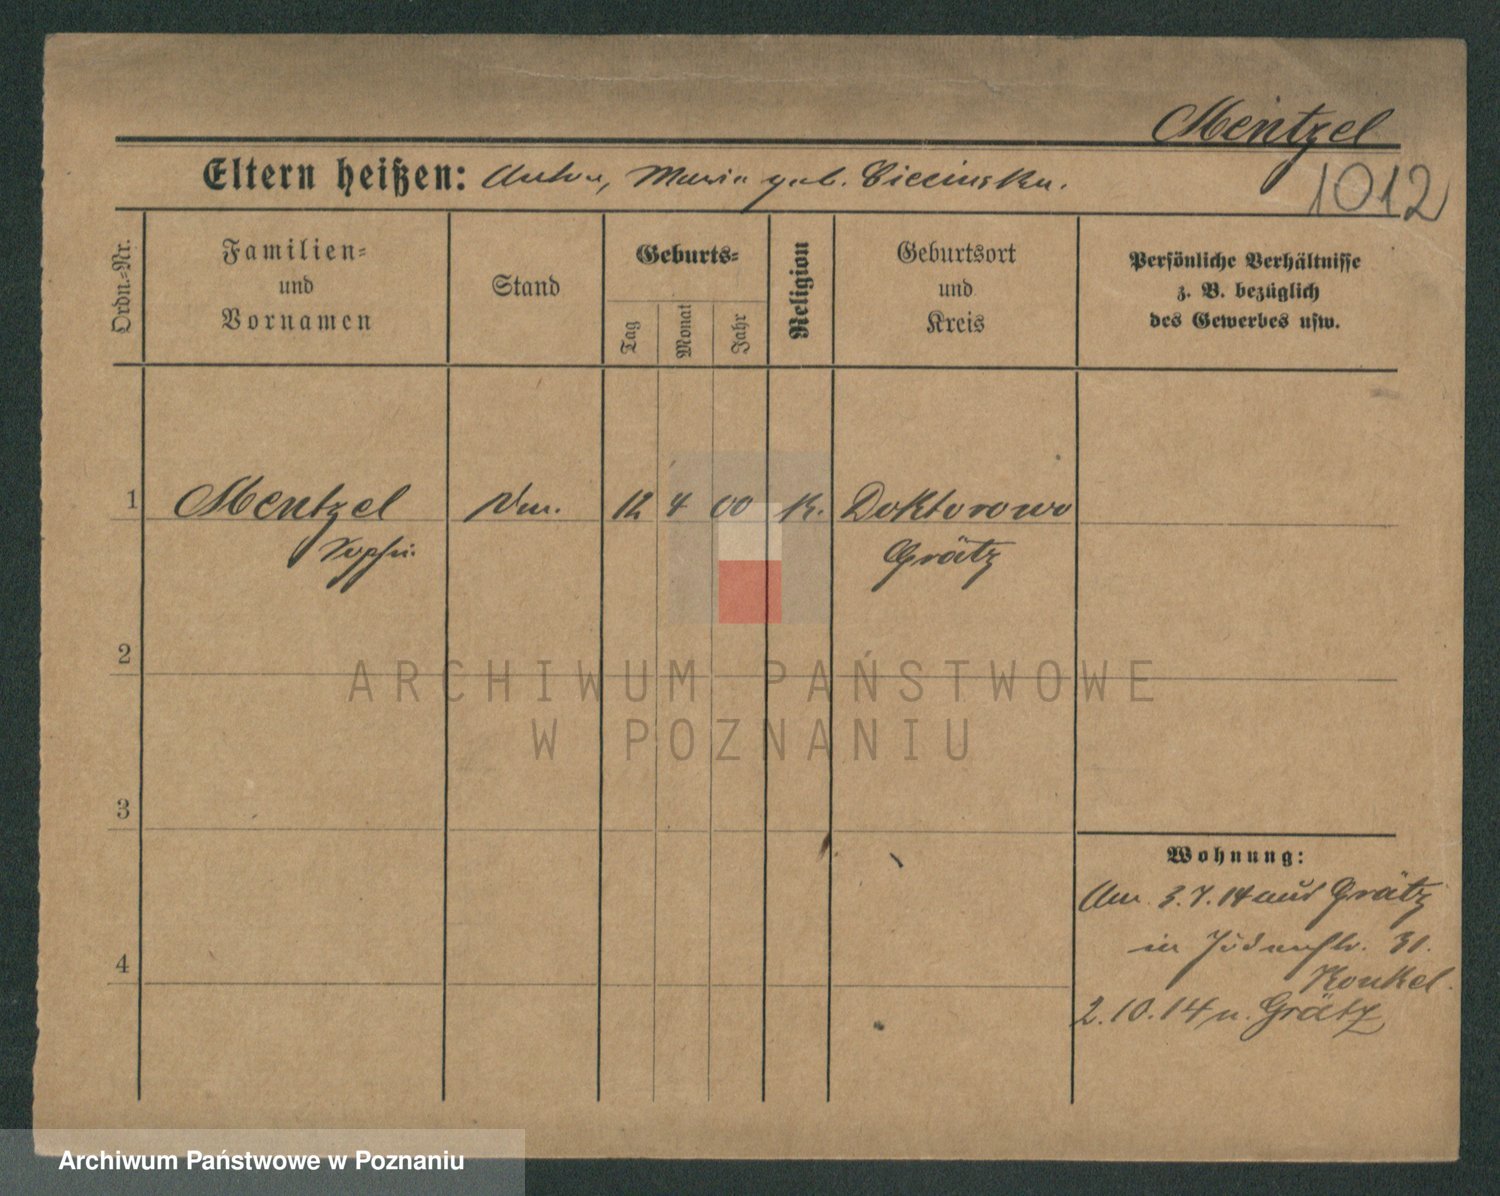 Mentzel
Eltern heißen: Anton, Maria geb. Ciecinska.
1012
Ordn.-Nr.
Familien-
und
Vornamen
Stand
Geburts-
Tag
Monat
Jahr
Religion
Geburtsort
und
Kreis
Persönliche Verhältnisse
z. B. bezüglich
des Gewerbes usw.
1 Mentzel 12 4 00 K. Doktorowo
Sophie Grätz
2
3
4
Wohnung:
Am 3.7.14 aus Grätz
in Judenstr. 31.
Konkel.
2.10.14 n. Grätz
ARCHIWUM PAŃSTWOWE
W POZNANIU
Archiwum Państwowe w Poznaniu